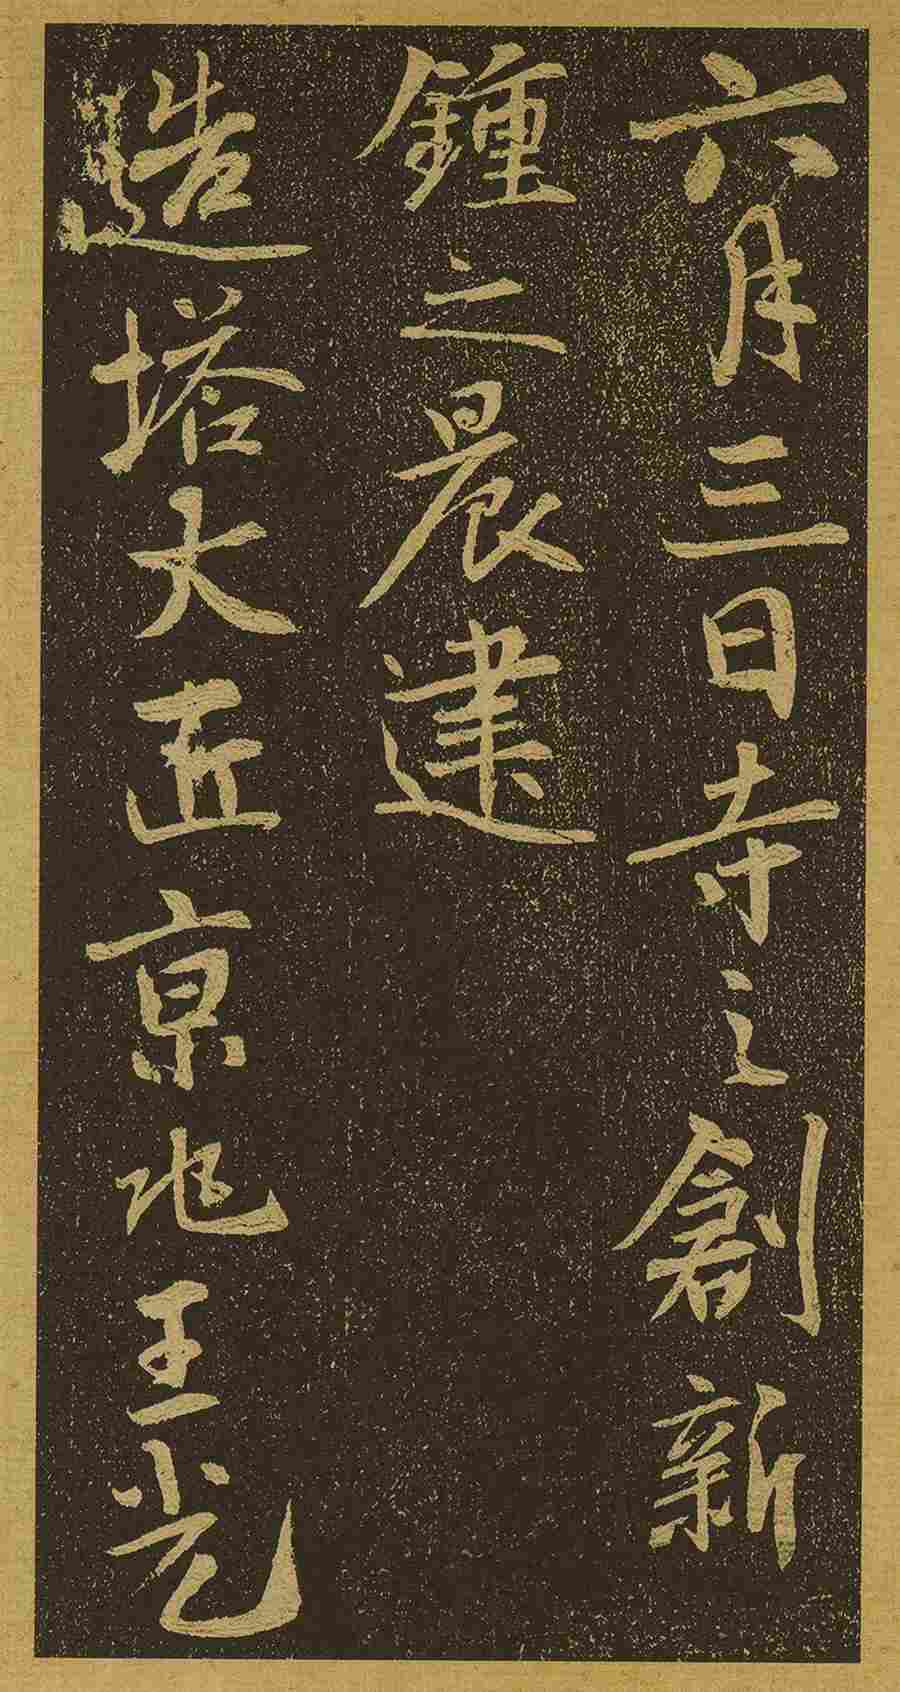 六月三日寺之創新
鍾之晨建
造塔大匠京兆王光